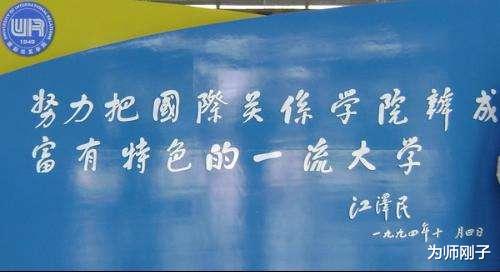 UNIVERSITY OF INTERNATIONAL RELATIONS
UIR
1949
努力把國際关係学院辦成
富有特色的一流大学
江澤民
一九九四年十月四日
为师刚子